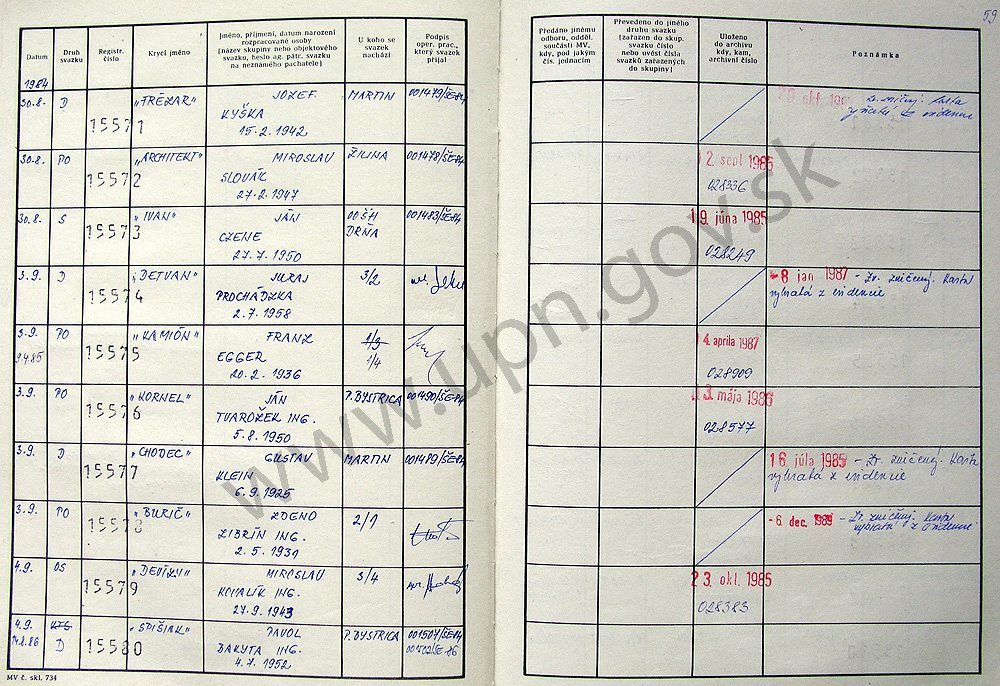 59
Datum
Druh svazku
Registr. číslo
Krycí jméno
Jméno, příjmení, datum narození rozpracované osoby (název skupiny nebo objektového svazku, heslo ag. pátr. svazku na neznámého pachatele)
U koho se svazek nachází
Podpis oper. prac., který svazek přijal
Předáno jinému odboru, odděl. součásti MV, kdy, pod jakým čís. jednacím
Převedeno do jiného druhu svazku (zařazen do skup. svazku číslo nebo uvést čísla svazků zařazených do skupiny)
Uloženo do archivu kdy, kam, archivní číslo
Poznámka
1984
30.8. D 15571 JOZEF MARTIN 001479/ŠE-84
KYŠKA
15.2.1942
30.8. PO 15572 „ARCHITEKT" MIROSLAV ŽILINA 001478/ŠE-84 2 sept 1985
SLOVÁK 028336
27.2.1947
30.8. S 15573 „IVAN" JÁN OO ŠH DRŇA 001483/ŠE-84 19. júna 1985
CZENE 028249
27.7.1950
3.9. D 15574 „DETVAN" JURAJ 3/2 -8 jan 1987 - Zv. zničený. Karta
PROCHÁDZKA vybratá z evidencie
2.7.1958
3.9. PO 15575 „KAMIÓN" FRANZ 4. apríla 1987
9.4.85 EGGER 1/4 028909
20.2.1936
3.9. PO 15576 „KORNEL" JÁN P.BYSTRICA 001490/ŠE-84 3. mája 1986
TVAROŽEK ING. 028577
5.8.1950
3.9. D 15577 „CHODEC" GUSTAV MARTIN 001489/ŠE-84 16. júla 1985 - Zv. zničený. Karta
KLEIN vybratá z evidencie
6.9.1925
3.9. PO 15578 „BURIČ" ZDENO 2/1 -6. dec. 1989 - Zv. zničený. Karta
ZIBRÍN ING. vybratá z evidencie
2.5.1931
4.9. OS 15579 MIROSLAV 3/4 23. okt. 1985
KOVALÍK ING. 028383
27.9.1943
4.9. 15580 „SPIŠIAK" PAVOL P.BYSTRICA 001507/ŠE-84
D BAKYTA ING.
4.7.1952
MV č. skl. 734
www.upn.gov.sk